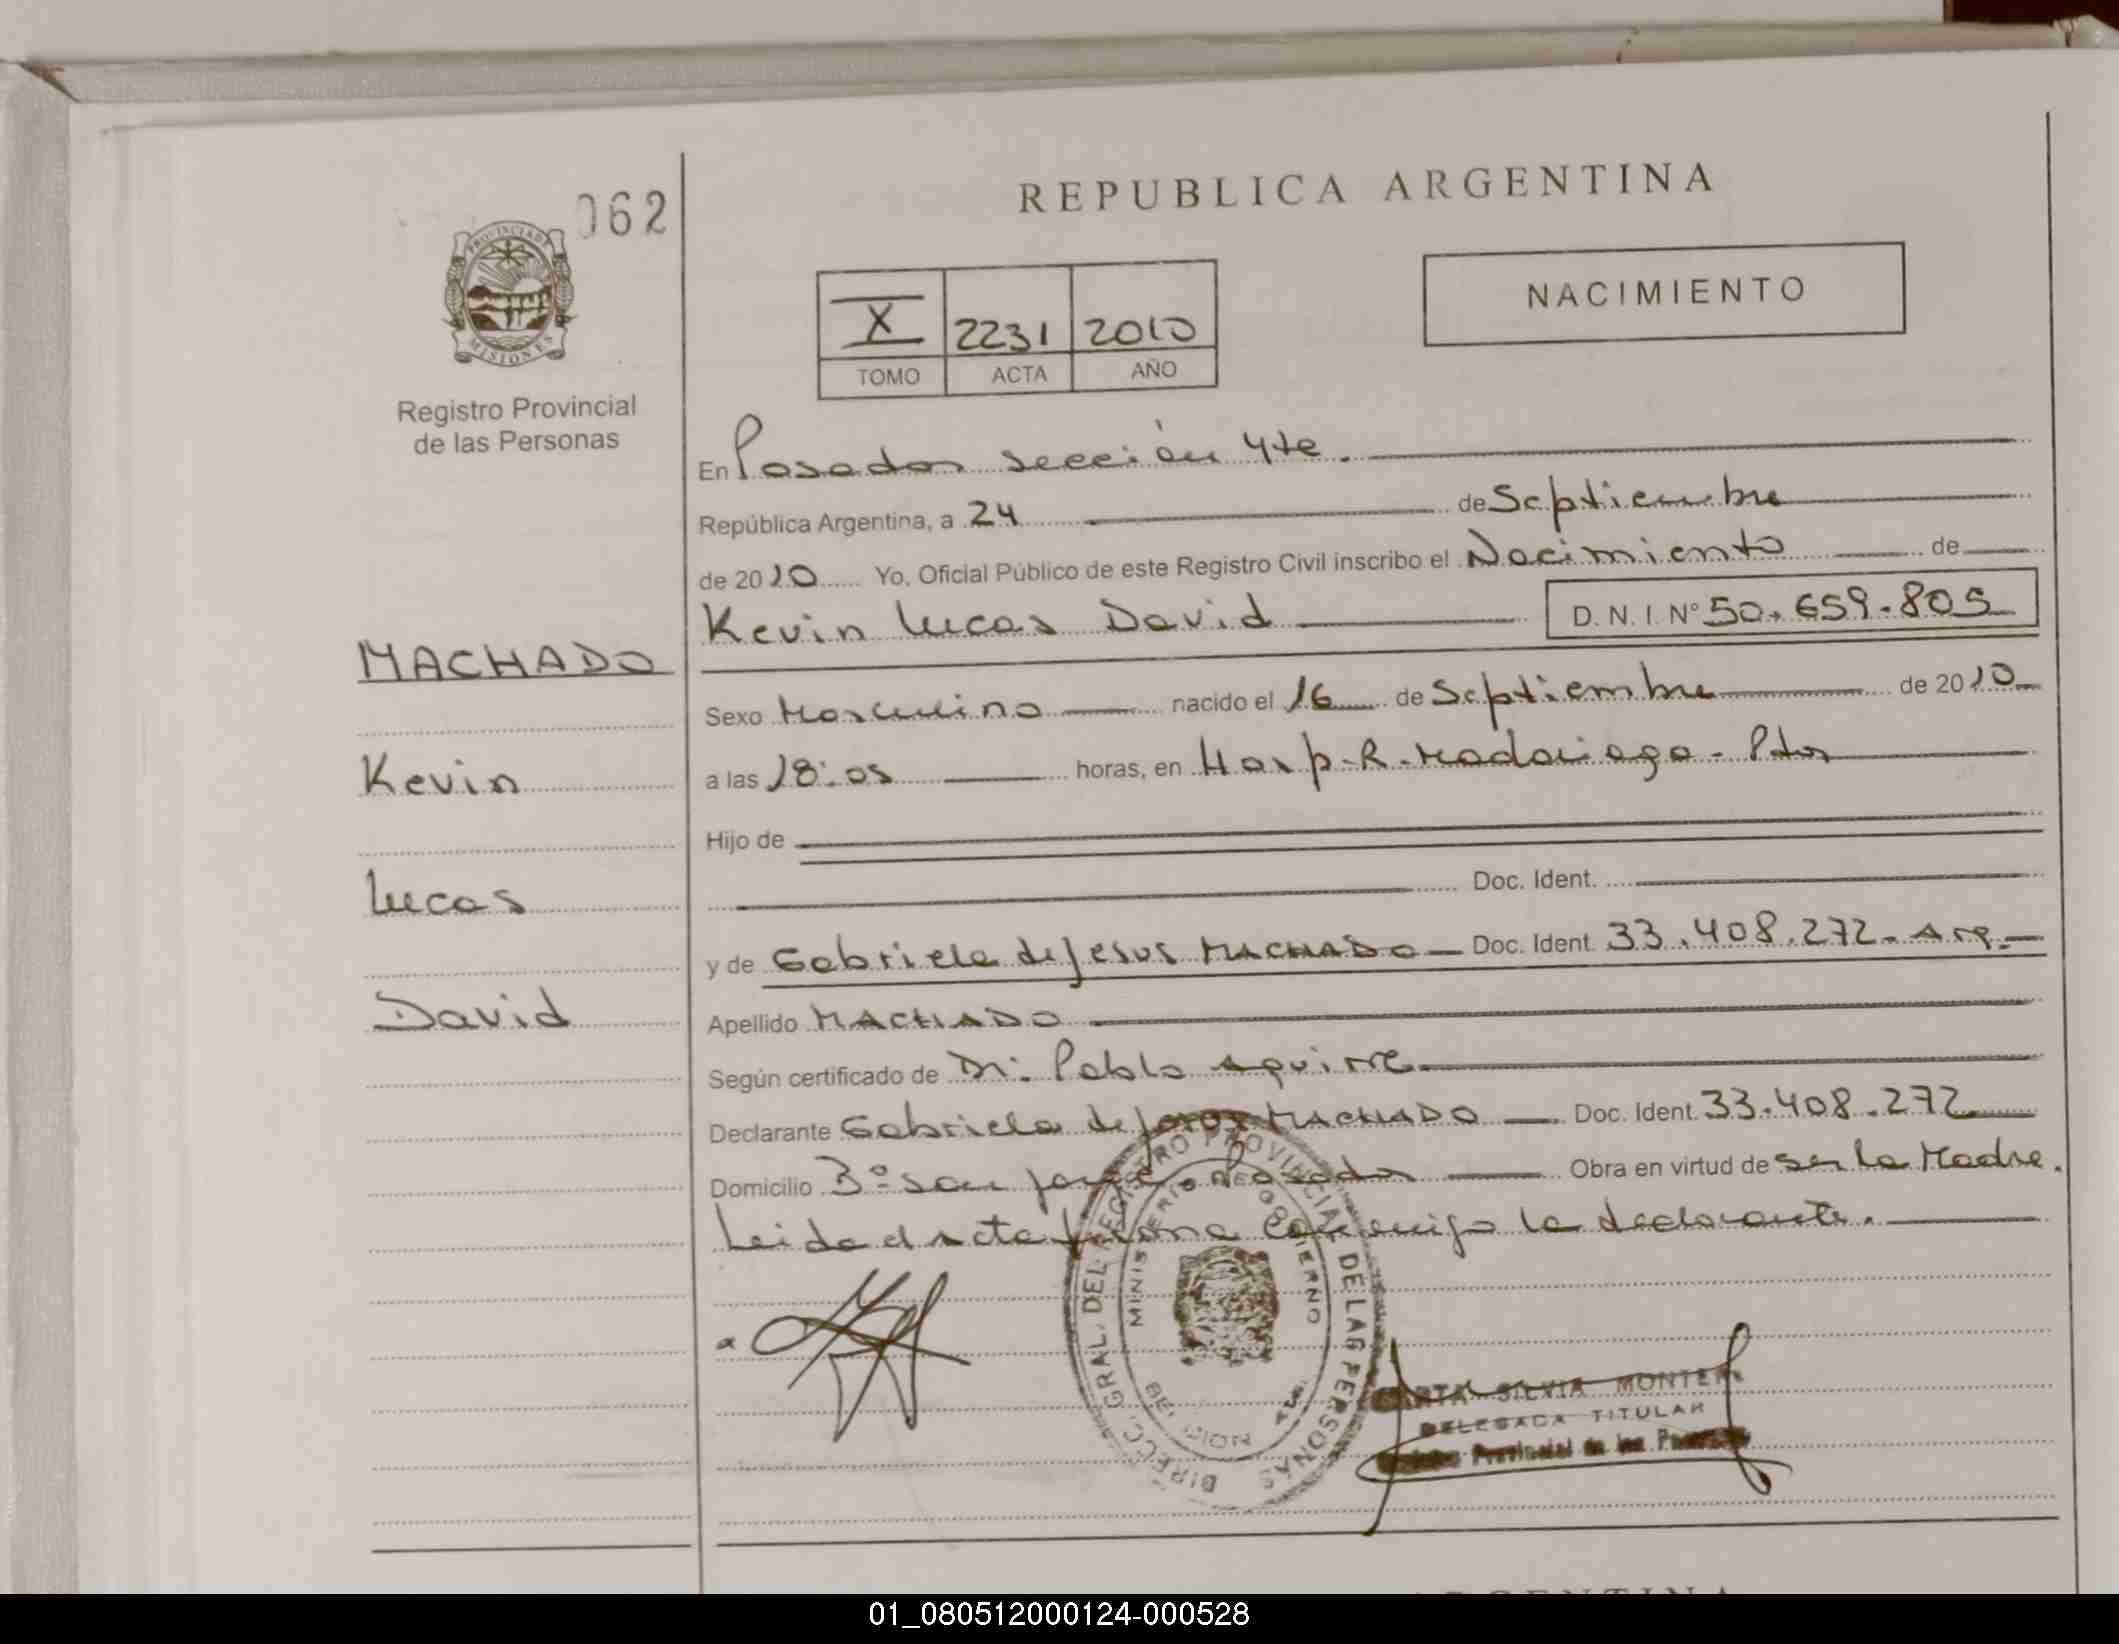 062
PROVINCIA DE
MISIONES
Registro Provincial
de las Personas
MACHADO
Kevin
Lucas
David
REPUBLICA ARGENTINA
X 2231 2010
TOMO ACTA AÑO
NACIMIENTO
En Posadas sección 4te.
República Argentina, a 24 de Septiembre
de 2010 Yo, Oficial Público de este Registro Civil inscribo el Nacimiento de
Kevin Lucas David D. N. I. N° 50.659.805
Sexo Masculino nacido el 16 de Septiembre de 2010
a las 18:05 horas, en Hosp. R. Madariaga - Pdas
Hijo de
Doc. Ident.
y de Gabriela de Jesus MACHADO Doc. Ident. 33.408.272. Arg.
Apellido MACHADO
Según certificado de Dr. Pablo Aguirre
Declarante Gabriela de Jesus MACHADO Doc. Ident. 33.408.272
Domicilio B° San Jorge - Posadas Obra en virtud de ser la Madre.
Leida el acta firma conmigo la declarante.
DIRECC. GRAL. DEL REGISTRO PROVINCIAL DE LAS PERSONAS
MINISTERIO DE GOBIERNO
SILVIA MONTER
DELEGADA TITULAR
Provincial de las
ARGENTINA
01_080512000124-000528